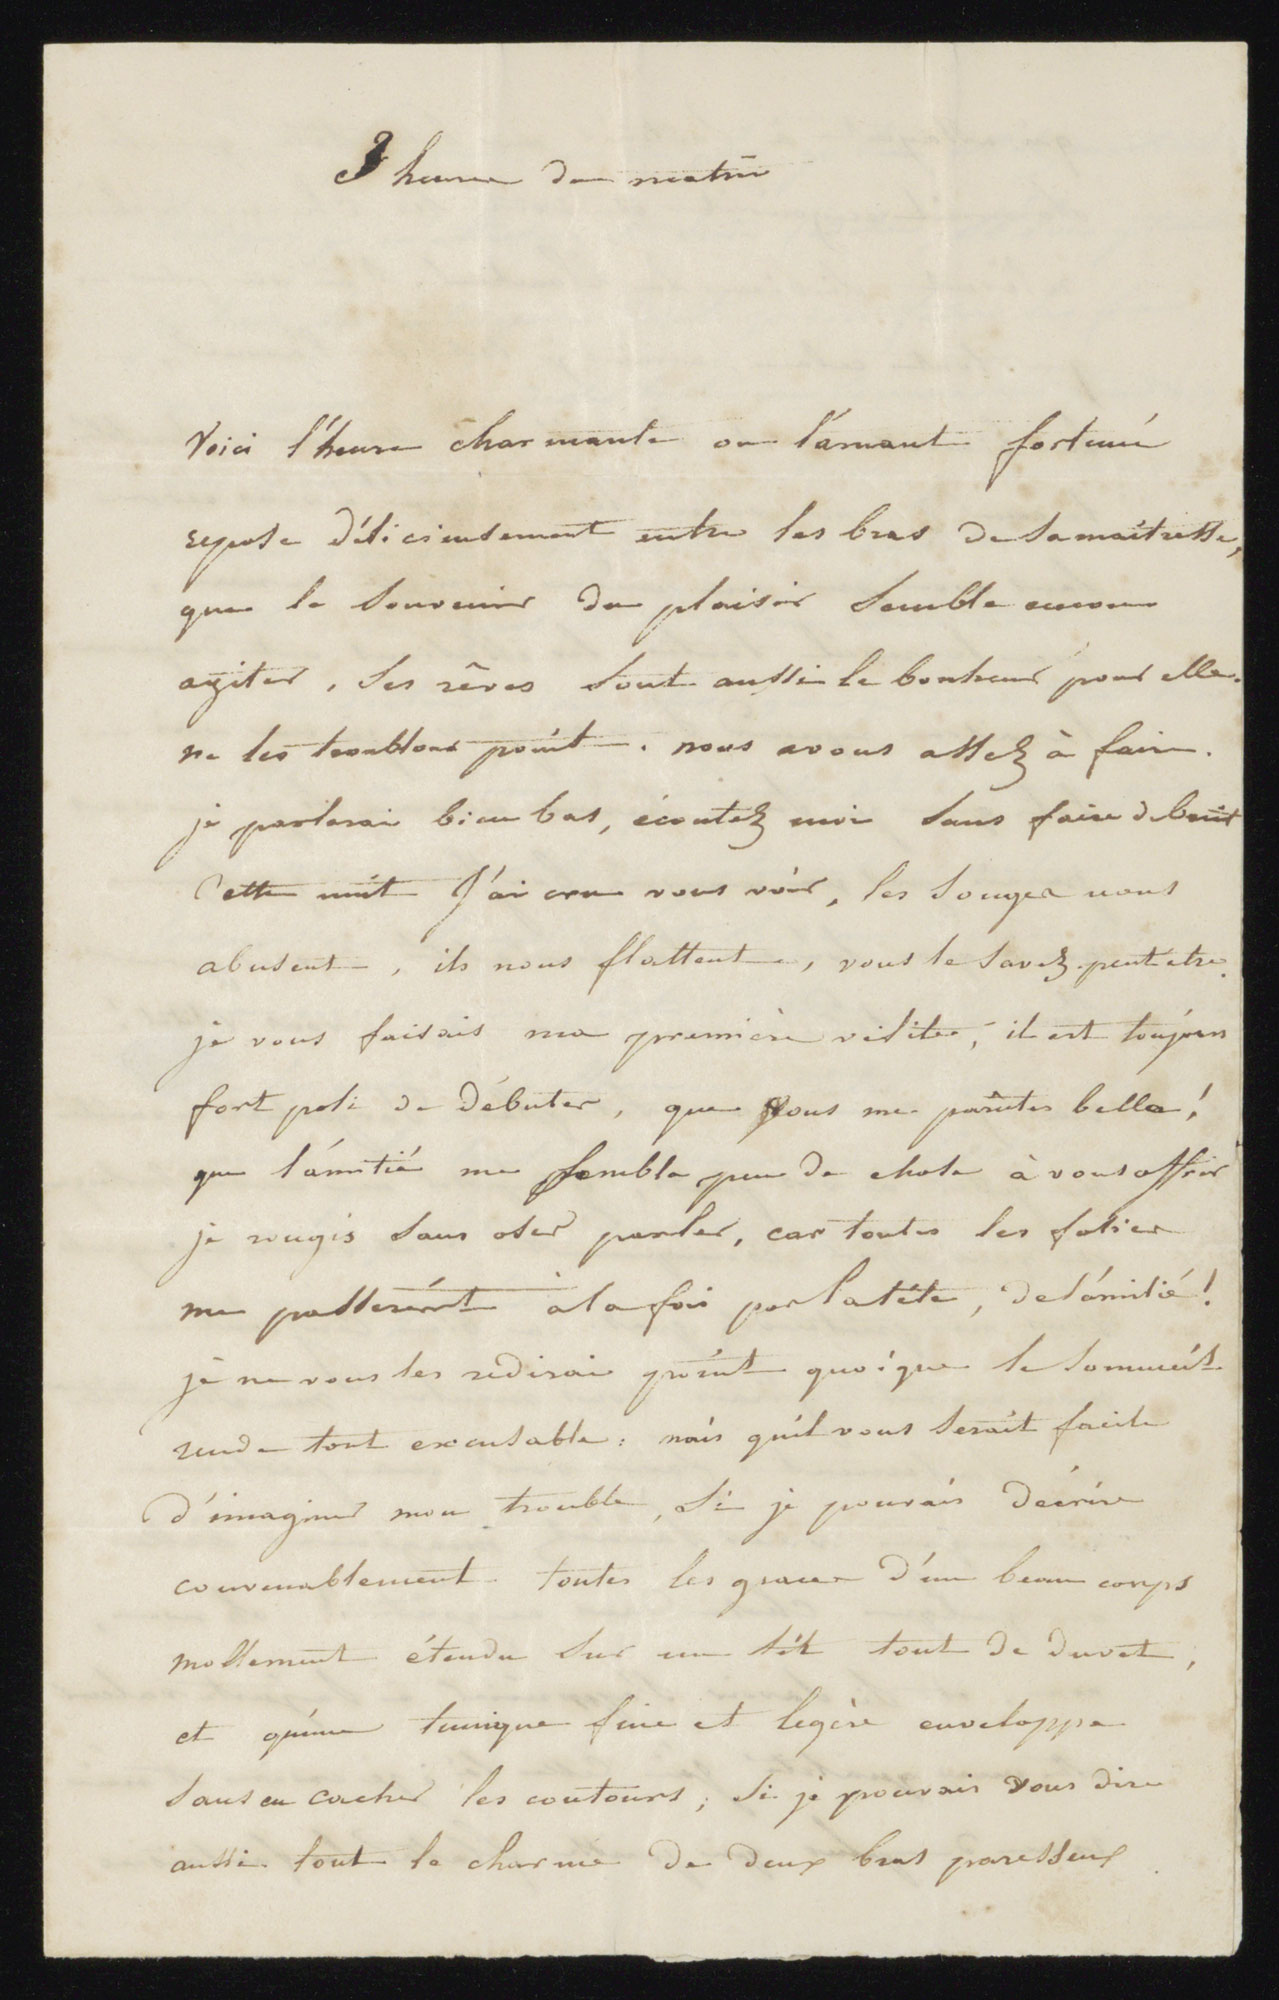 3 heures du matin
Voici l'heure charmante ou l'amant fortuné
repose délicieusement entre les bras de sa maîtresse,
que le souvenir du plaisir semble encore
agiter, ses rêves sont aussi le bonheur pour elle.
ne les troublons point. nous avons assez à faire.
je parlerai bien bas, écoutez moi sans faire de bruit
Cette nuit J'ai cru vous voir, les songes nous
abusent, ils nous flattent, vous le savez peut etre.
je vous faisais ma première visite, il est toujours
fort poli de débuter, que vous me parûtes belle!
que l'amitié me sembla peu de chose à vous offrir
je rougis sans oser parler, car toutes les folies
me passèrent à la fois par la tête, de l'amitié!
je ne vous les redirai point quoique le sommeil
rende tout excusable: mais qu'il vous serait facile
d'imaginer mon trouble, si je pouvais décrire
convenablement toutes les graces d'un beau corps
mollement étendu sur un lit tout de duvet,
et qu'une tunique fine et legère enveloppe
sans en cacher les contours; si je pouvais vous dire
aussi tout le charme de deux bras paresseux